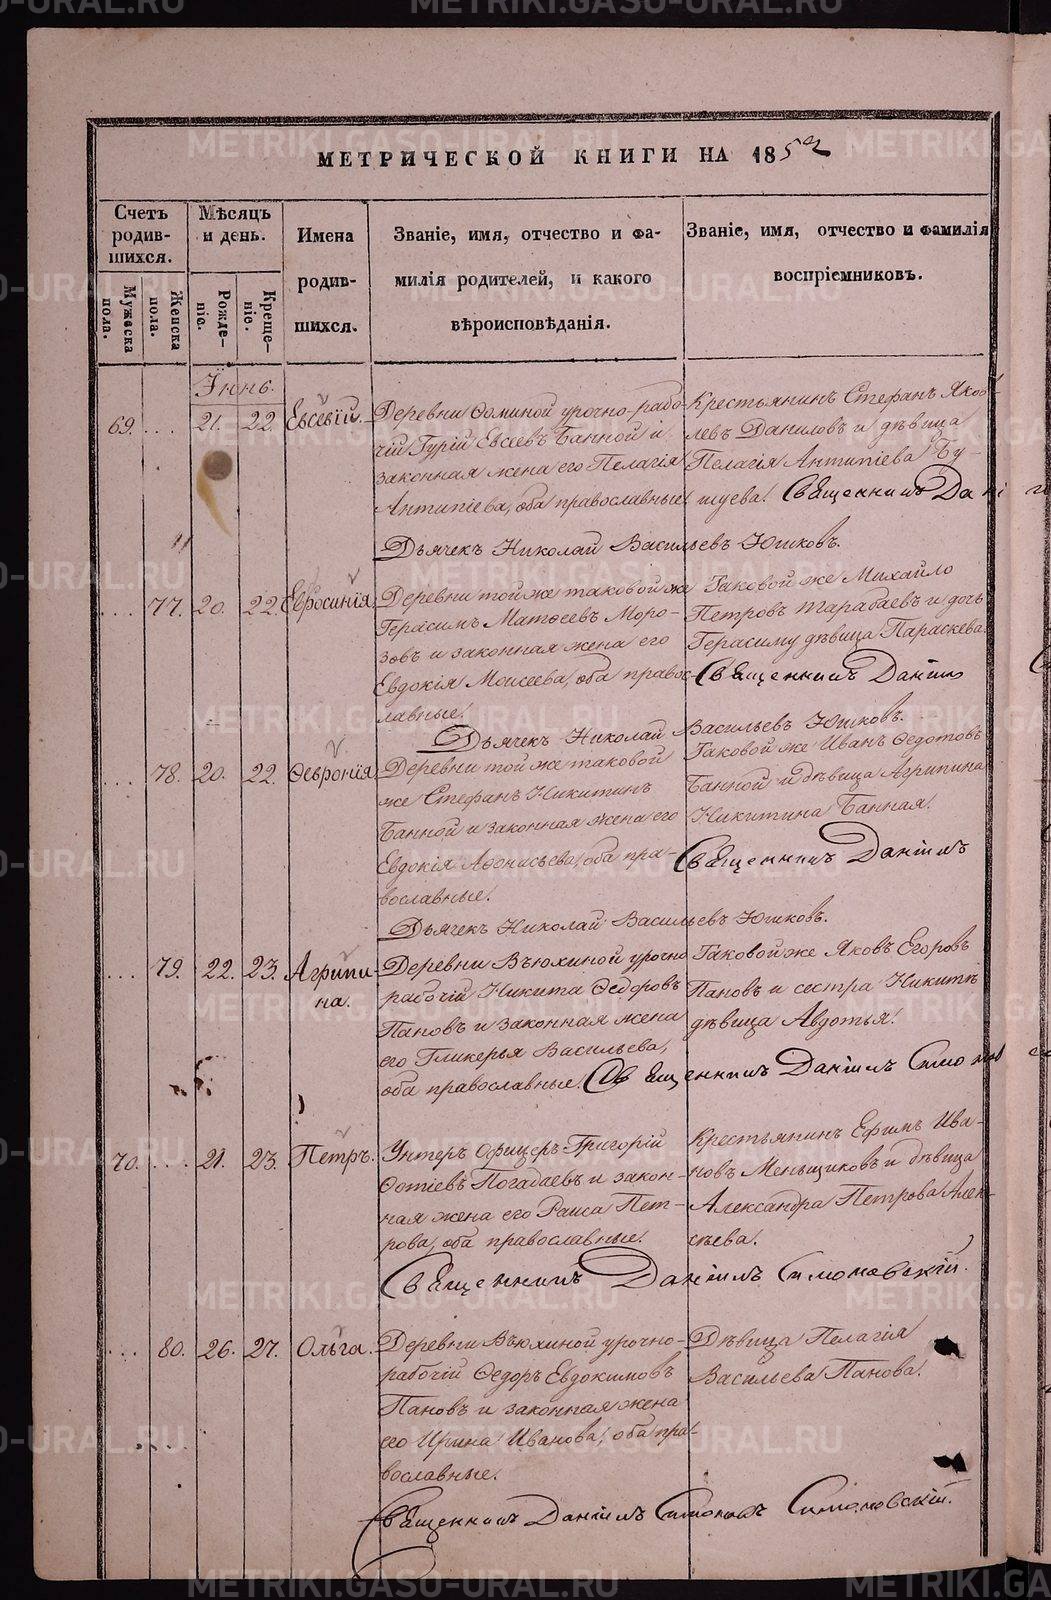 МЕТРИЧЕСКОЙ КНИГИ НА 1852
Счетъ родившихся.
Мѣсяцъ и день.
Имена родившихся.
Званіе, имя, отчество и фамилія родителей, и какого вѣроисповѣданія.
Званіе, имя, отчество и фамилія воспріемниковъ.
Мужеска пола.
Женска пола.
Рожденіе.
Крещеніе.
Іюнь.
69. .... 21. 22. Евсевій.
Деревни Ѳоминой урочно-рабо-
чій Гурій Евсеевъ Банной и
законная жена его Пелагія
Антипіева, оба православные.
Крестьянинъ Стефанъ Яков-
левъ Даниловъ и дѣвица
Пелагія Антипіева Бу-
шуева. Священникъ Дані
Дьячекъ Николай Васильевъ Юшковъ.
.... 77. 20. 22. Евфросинія.
Деревни той же таковой же
Герасимъ Матѳеевъ Моро-
зовъ и законная жена его
Евдокія Моисеева, оба правос-
лавные.
Таковой же Михайло
Петровъ Тарабаевъ и дочь
Герасиму дѣвица Параскева.
Священникъ Даніилъ
Дьячекъ Николай Васильевъ Юшковъ.
.... 78. 20. 22. Ѳевронія.
Деревни той же таковой
же Стефанъ Никитинъ
Банной и законная жена его
Евдокія Аѳонасьева, оба пра-
вославные.
Таковой же Иванъ Ѳедотовъ
Банной и дѣвица Агрипина
Никитина Банная.
Священникъ Даніилъ
Дьячекъ Николай Васильевъ Юшковъ.
.... 79. 22. 23. Агрипи-
на.
Деревни Вьюхиной урочно
рабочій Никита Ѳедоровъ
Пановъ и законная жена
его Гликерья Васильева,
оба православные.
Таковой же Яковъ Егоровъ
Пановъ и сестра Никитѣ
дѣвица Авдотья.
Священникъ Даніилъ Симонов
70. .... 21. 23. Петръ.
Унтеръ Офицеръ Григорій
Фотіевъ Погадаевъ и закон-
ная жена его Раиса Пет-
рова, оба православные.
Крестьянинъ Ефимъ Ива-
новъ Меньщиковъ и дѣвица
Александра Петрова Алек-
сѣева.
Священникъ Даніилъ Симоновскій.
.... 80. 26. 27. Ольга.
Деревни Вьюхиной урочно-
рабочій Ѳедоръ Евдокимовъ
Пановъ и законная жена
его Ирина Иванова, оба пра-
вославные.
Дѣвица Пелагія
Васильева Панова.
Священникъ Даніилъ Симоновъ Симоновскій.
METRIKI.GASO-URAL.RU